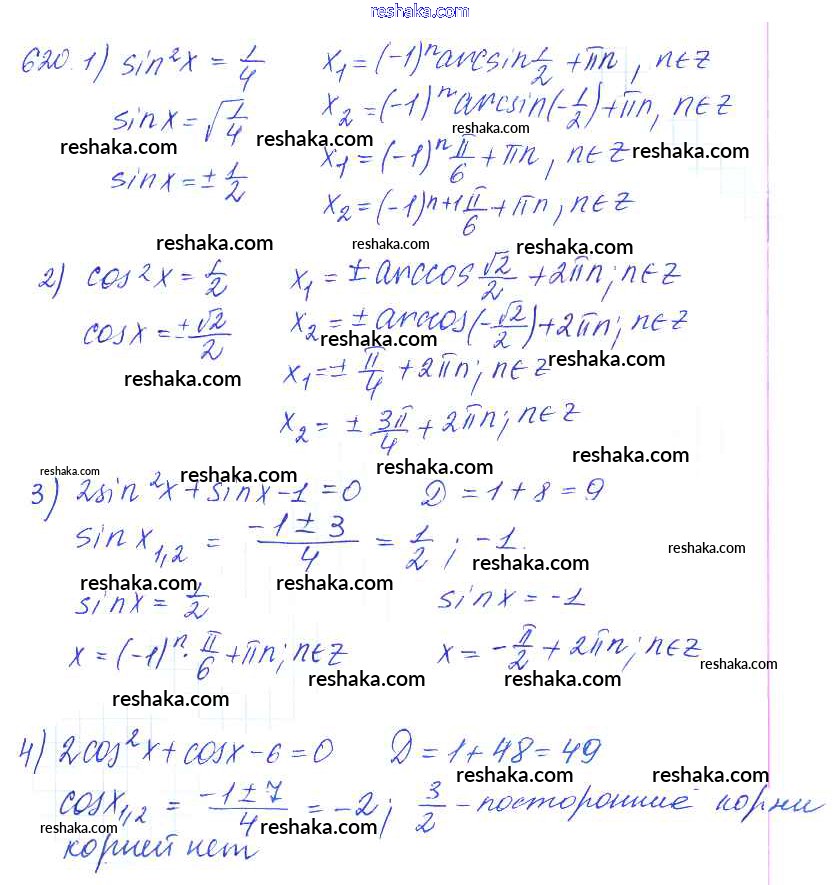 reshaka.com
620. 1) sin²x = 1/4   x₁ = (-1)ⁿ arcsin 1/2 + πn, n∈Z
sin x = √1/4   x₂ = (-1)ⁿ arcsin(-1/2) + πn, n∈Z
reshaka.com reshaka.com reshaka.com
x₁ = (-1)ⁿ π/6 + πn, n∈Z reshaka.com
sin x = ± 1/2   x₂ = (-1)ⁿ⁺¹ π/6 + πn, n∈Z
reshaka.com reshaka.com reshaka.com
2) cos²x = 1/2   x₁ = ± arccos √2/2 + 2πn; n∈Z
cos x = ±√2/2   x₂ = ± arccos(-√2/2) + 2πn; n∈Z
reshaka.com reshaka.com
x₁ = ± π/4 + 2πn; n∈Z reshaka.com
reshaka.com
x₂ = ± 3π/4 + 2πn; n∈Z
reshaka.com reshaka.com reshaka.com reshaka.com
3) 2sin²x + sin x - 1 = 0   D = 1 + 8 = 9
sin x₁,₂ = -1 ± 3/4 = 1/2; -1.
reshaka.com reshaka.com reshaka.com reshaka.com
sin x = 1/2   sin x = -1
x = (-1)ⁿ · π/6 + πn; n∈Z   x = -π/2 + 2πn; n∈Z
reshaka.com reshaka.com reshaka.com reshaka.com
4) 2cos²x + cos x - 6 = 0   D = 1 + 48 = 49
reshaka.com reshaka.com
cos x₁,₂ = -1 ± 7/4 = -2; 3/2 - посторонние корни
reshaka.com reshaka.com reshaka.com
корней нет